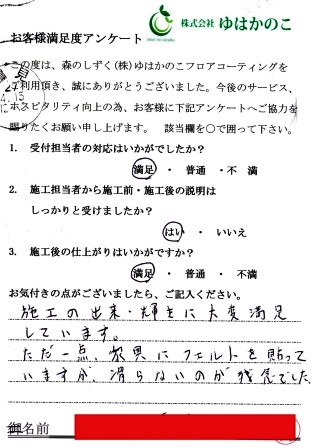 株式会社 ゆはかのこ
お客様満足度アンケート
この度は、森のしずく(株)ゆはかのこフロアコーティングを
ご利用頂き、誠にありがとうございました。今後のサービス、
ホスピタリティ向上の為、お客様に下記アンケートへご協力を
賜りたくお願い申し上げます。 該当欄を〇で囲って下さい。
1. 受付担当者の対応はいかがでしたか？
満足 ・ 普通 ・不 満
2. 施工担当者から施工前・施工後の説明は
しっかりと受けましたか？
はい ・ いいえ
3. 施工後の仕上がりはいかがですか？
満足 ・ 普通 ・ 不満
お気付きの点がございましたら、ご記入ください。
施工の出来・輝きに大変満足
しています。
ただ一点、家具にフェルトを貼って
いますが、滑らないのが残念でした
御名前